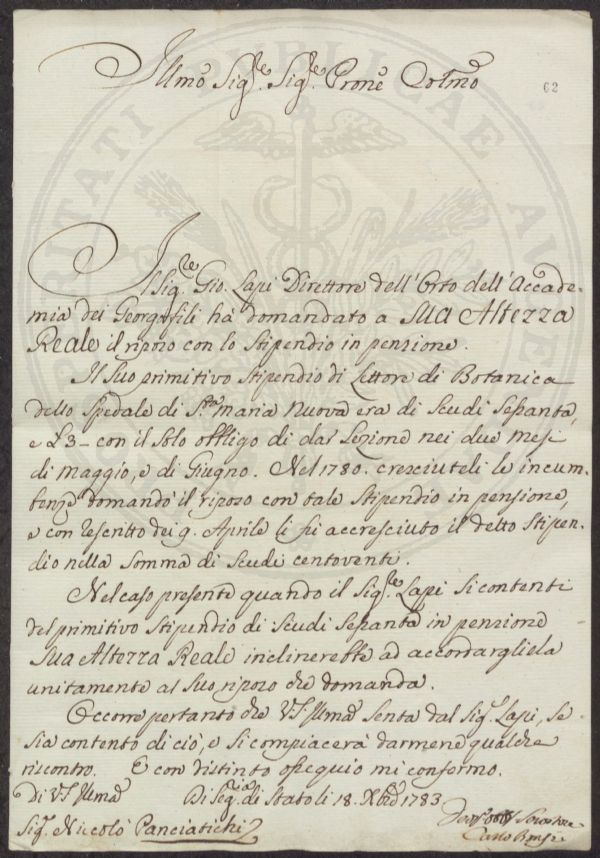 Illmo Sigre. Sigre. Prone Colmo
62
Il Sigre. Gio. Lapi Direttore dell'Orto dell'Accade-
mia dei Georgofili hà domandato a SUA Altezza
Reale il riposo con lo Stipendio in pensione.
Il Suo primitivo Stipendio di Lettore di Botanica
dello Spedale di Sta. Maria Nuova era di Scudi Sepanta,
e £3 - con il solo obbligo di dar Lezione nei due Mesi
di Maggio, e di Giugno. Nel 1780. cresciuteli le incum-
benze domandò il riposo con tale Stipendio in pensione,
e con rescritto dei 9. Aprile li fù accresciuto il detto Stipen-
dio nella Somma di Scudi centoventi.
Nel caso presente quando il Sigre. Lapi si contenti
del primitivo Stipendio di Scudi Sepanta in pensione
Sua Altezza Reale inclinerebbe ad accordargliela
unitamente al Suo riposo che domanda.
Occorre pertanto che VS Illma Senta dal Sigr. Lapi, se
sia contento di ciò, e si compiacerà darmene qualche
riscontro. E con distinto ossequio mi confermo.
Di VS Illma Di Segria. di Stato li 18. Xbre 1783
Sigr. Niccolò Panciatichi
PROSPERITATI PUBLICAE AUGENDAE